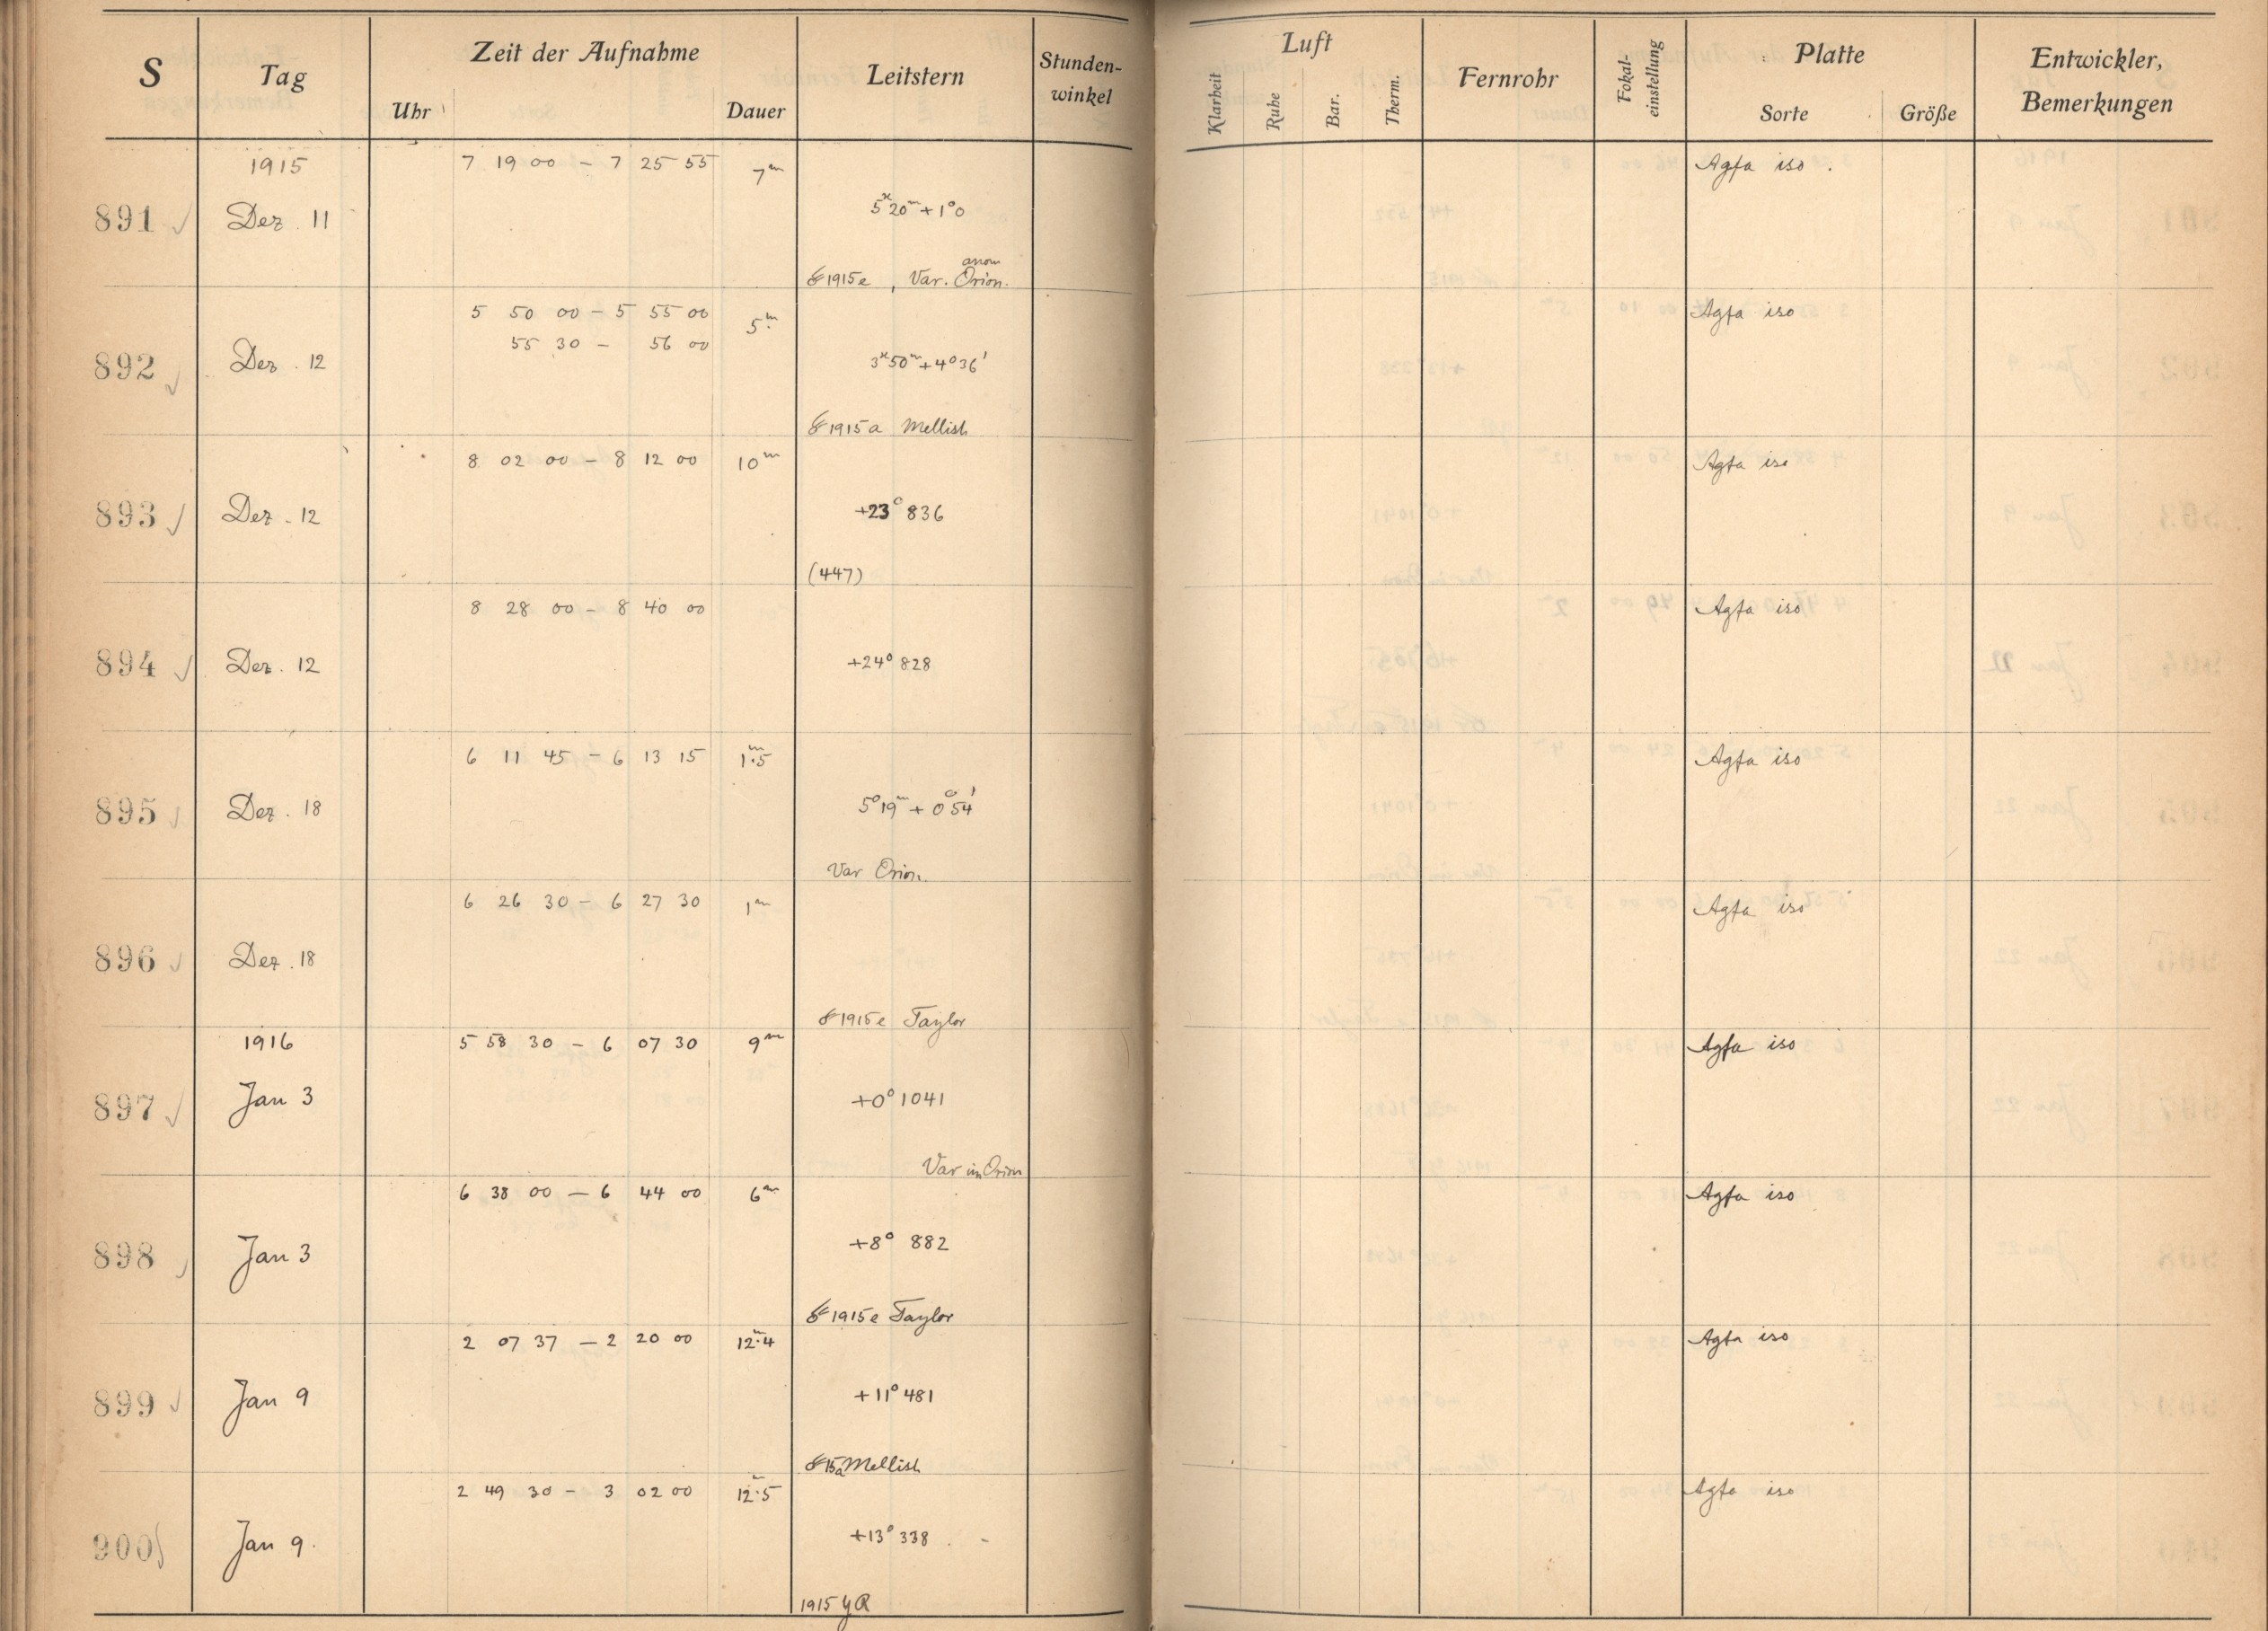 S Tag Zeit der Aufnahme Leitstern Stunden-winkel Luft Fernrohr Fokal-einstellung Platte Entwickler, Bemerkungen
Uhr Dauer Klarheit Ruhe Bar. Therm. Sorte Größe
1915 7 19 00 – 7 25 55 7m Agfa iso .
891 Dez. 11 5 20m + 1°0
1915e , Var. Orion.
5 50 00 – 5 55 00 5m Agfa iso
55 30 – 56 00
892 Dez. 12 3 50m + 4°36'
1915a Mellish
8 02 00 – 8 12 00 10m Agfa iso
893 Dez. 12 +23° 836
(447)
8 28 00 – 8 40 00 Agfa iso
894 Dez. 12 +24° 828
6 11 45 – 6 13 15 1m.5 Agfa iso
895 Dez. 18 5° 19m + 0° 54'
Var Orion.
6 26 30 – 6 27 30 1m Agfa iso
896 Dez. 18
1915e Taylor
1916 5 58 30 – 6 07 30 9m Agfa iso
897 Jan 3 +0° 1041
Var in Orion
6 38 00 – 6 44 00 6m Agfa iso
898 Jan 3 +8° 882
1915e Taylor
2 07 37 – 2 20 00 12m.4 Agfa iso
899 Jan 9 +11° 481
15a Mellish
2 49 30 – 3 02 00 12m.5 Agfa iso
900 Jan 9. +13° 338
1915 YR